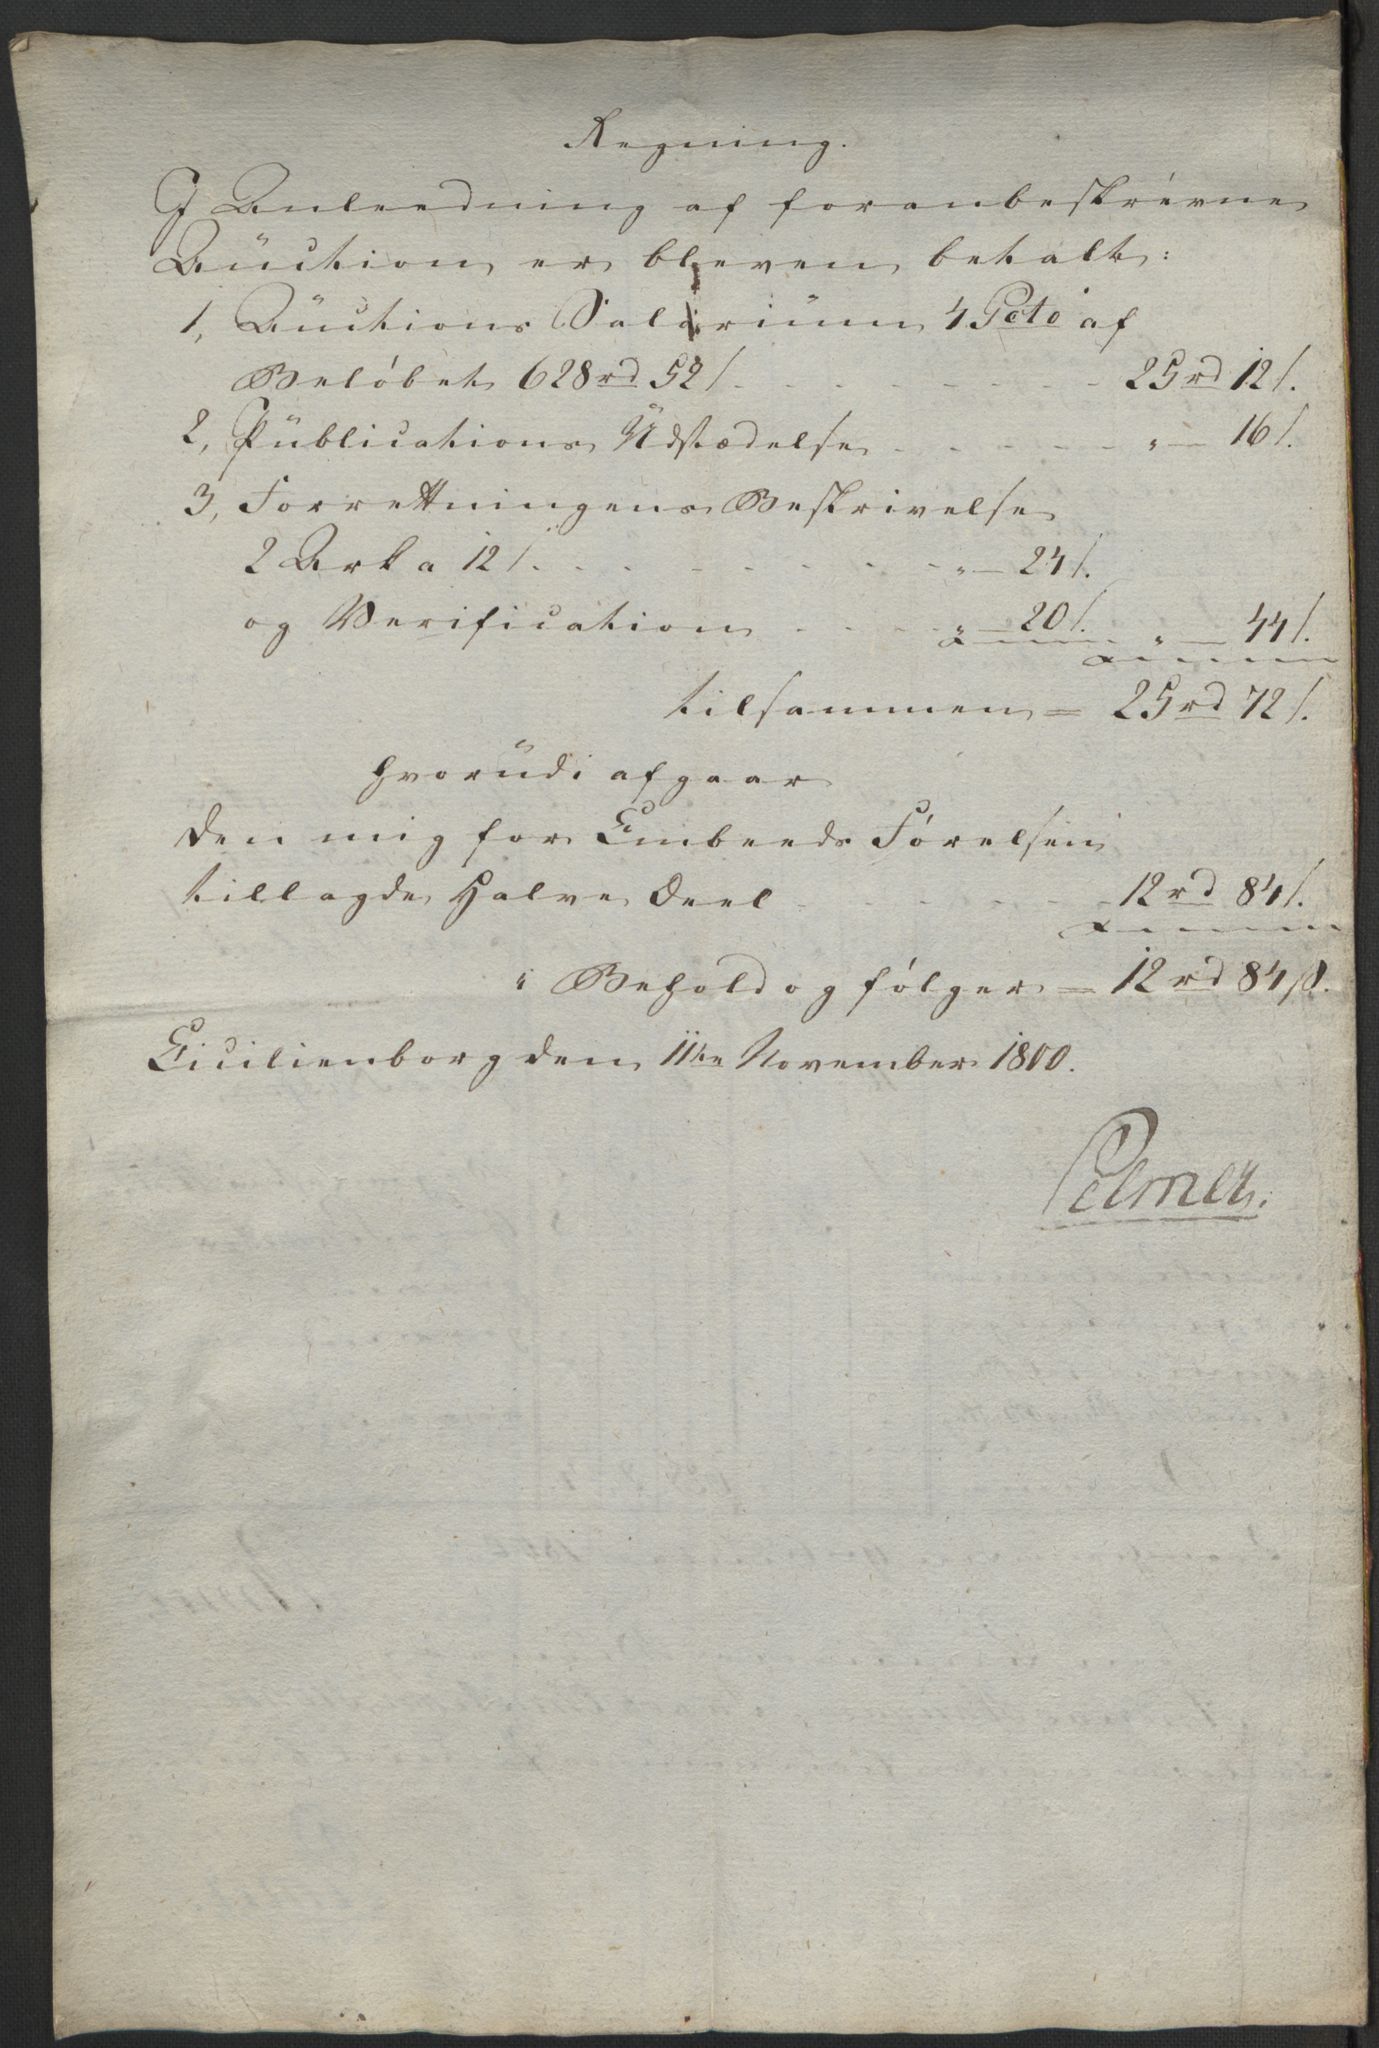 Regning.
I Anleedning af foranbeskrevne
Auction er bleven betalt:
1, Auctions Salarium 4 Pcto af
Beløbet 628 rd 52 s. - - - - 25 rd 12 s.
2, Publications Udstædelse - - - - " — 16 s.
3, Forrettningens Beskrivelse
2 Ark a 12 s. - - - - " — 24 s.
og Verification - - - - " — 20 s. " — 44 s.
tilsammen = 25 rd 72 s.
hvorudi afgaar
den mig for Embeeds Førelsen
tillagde Halve Deel - - - - 12 rd 84 s.
i Behold og følger = 12 rd 84 s.
Cicilienborg den 11te November 1800.